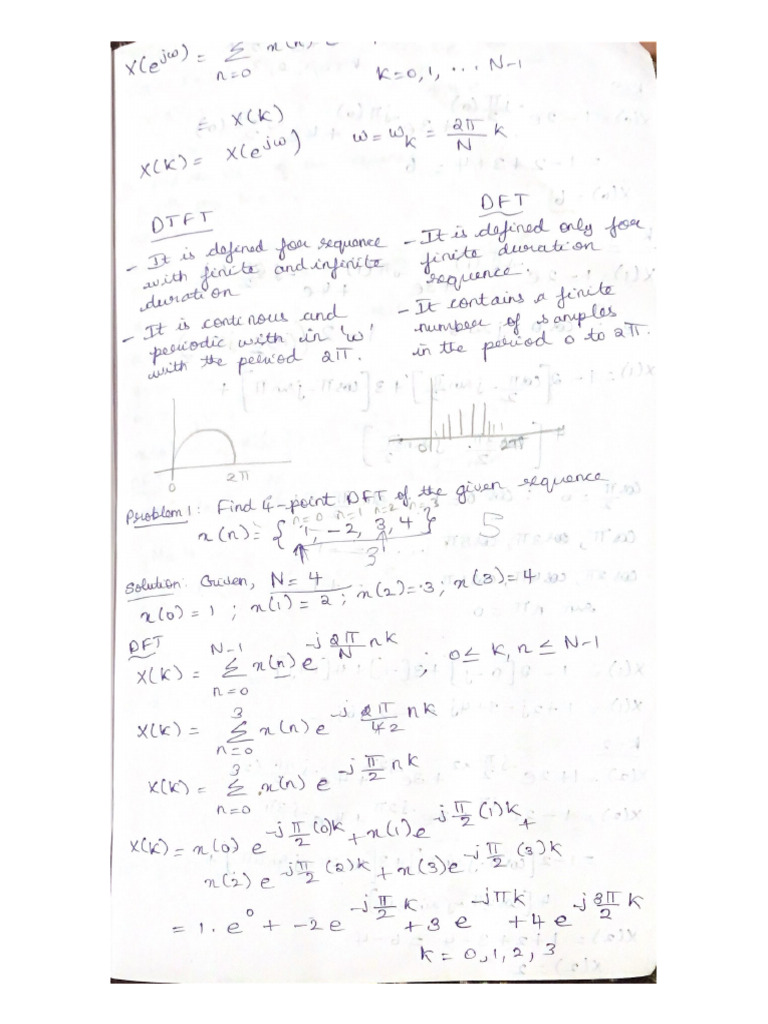 X(e^jω) = Σ n=0 x(n) e
k=0,1, ... N-1
= X(k)
X(k) = X(e^jω) ω = ω_k = 2π/N k
DTFT
- It is defined for sequence
with finite and infinite
duration
- It is continous and
periodic with in 'ω'
with the period 2π.
DFT
- It is defined only for
finite duration
sequence.
- It contains a finite
number of samples
in the period 0 to 2π.
0 2π
0 2π
Problem 1: Find 4-point DFT of the given sequence
n=0 n=1 n=2 n=3
x(n) = { 1, -2, 3, 4 } 5
3
Solution: Given, N = 4
x(0) = 1 ; x(1) = 2 ; x(2) = 3 ; x(3) = 4
DFT
X(k) = Σ_{n=0}^{N-1} x(n) e^{-j 2π/N nk} ; 0 ≤ k, n ≤ N-1
X(k) = Σ_{n=0}^{3} x(n) e^{-j 2π/4 2 nk}
X(k) = Σ_{n=0}^{3} x(n) e^{-j π/2 nk}
X(k) = x(0) e^{-j π/2 (0)k} + x(1) e^{-j π/2 (1)k} +
x(2) e^{-j π/2 (2)k} + x(3) e^{-j π/2 (3)k}
= 1. e^0 + -2 e^{-j π/2 k} + 3 e^{-jπk} + 4 e^{-j 3π/2 k}
k = 0, 1, 2, 3